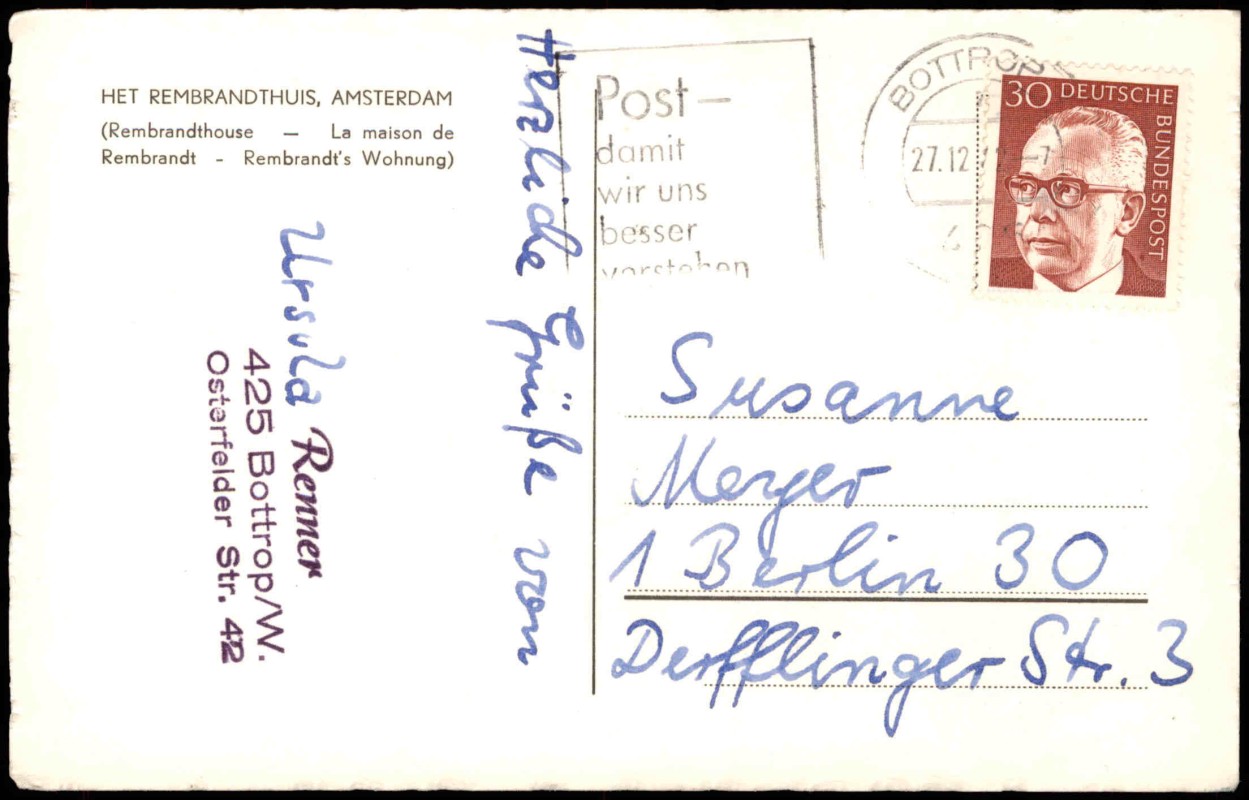 HET REMBRANDTHUIS, AMSTERDAM
(Rembrandthouse — La maison de
Rembrandt - Rembrandt's Wohnung)
Herzliche Grüße von
Ursula Renner
425 Bottrop/W.
Osterfelder Str. 42
Post –
damit
wir uns
besser
verstehen
BOTTROP
27.12
30 DEUTSCHE
BUNDESPOST
Susanne
Merger
1 Berlin 30
Derfflinger Str. 3